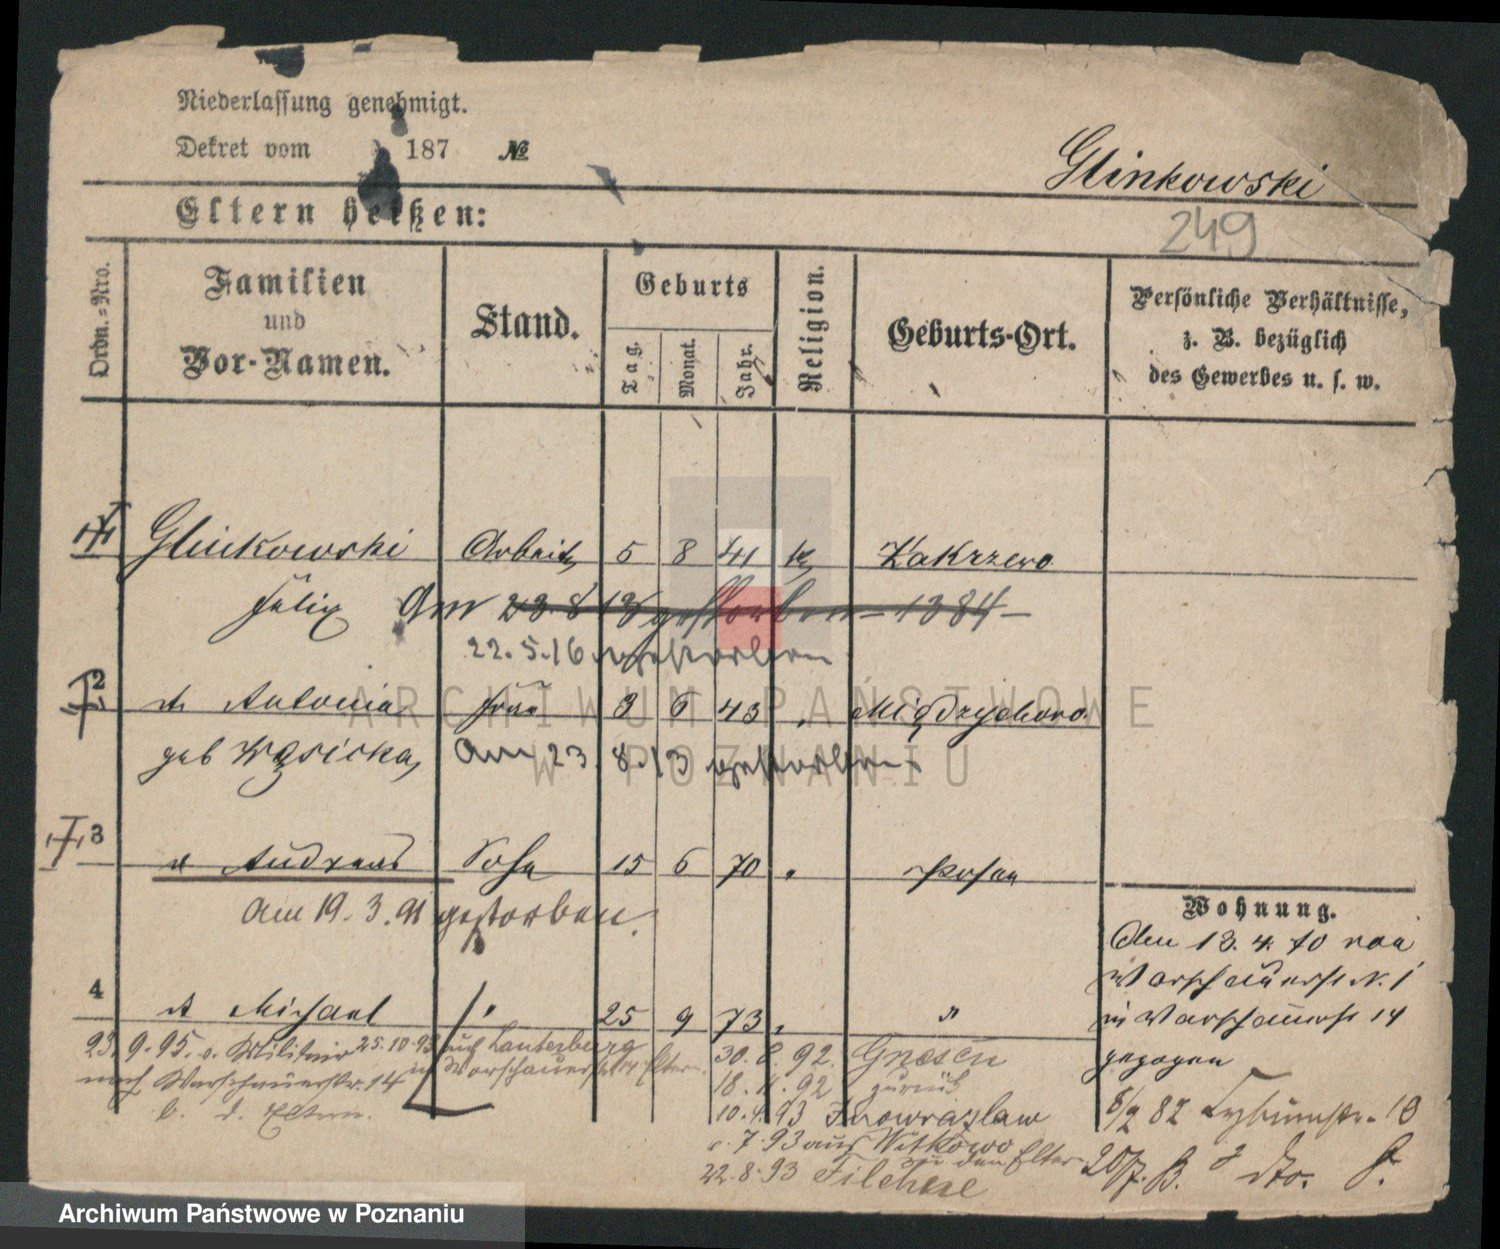 Niederlassung genehmigt.
Dekret vom 187 №
Glinkowski
Eltern heißen:
249
Ordn.-Nro.
Familien
und
Vor-Namen.
Stand.
Geburts
Tag.
Monat.
Jahr.
Religion.
Geburts-Ort.
Persönliche Verhältnisse,
z. B. bezüglich
des Gewerbes u. s. w.
1 Glinkowski Arbeit. 5 8 41 k. Zakrzewo
Felix Am 23.8.13 gestorben 1384
22.5.16 gestorben
2 Antonia Frau 3 6 43 Międzychowo
geb Wąsicka, Am 23. 8. 13 gestorben
3 Andreas Sohn 15 6 70 Posen
Am 19. 3. 91 gestorben.
4 Michael " 25 9 73 "
23. 9. 95. v. Militair 25.10.95 auf Lauterberg
nach Warschauerstr. 14 in Warschauerstr 14 Eltern.
b. d. Eltern.
30. 8. 92. Gnesen
18. 11. 92 zurück
10. 4. 93 Inowrazlaw
7. 93 aus Witkowo
zu den Eltern
22. 8. 93 Filehne
Wohnung.
Am 13. 4. 70 von
Warschauerstr N. 1
in Warschauerstr 14
gezogen
82 10
dto.
ARCHIWUM PAŃSTWOWE
W POZNANIU
Archiwum Państwowe w Poznaniu